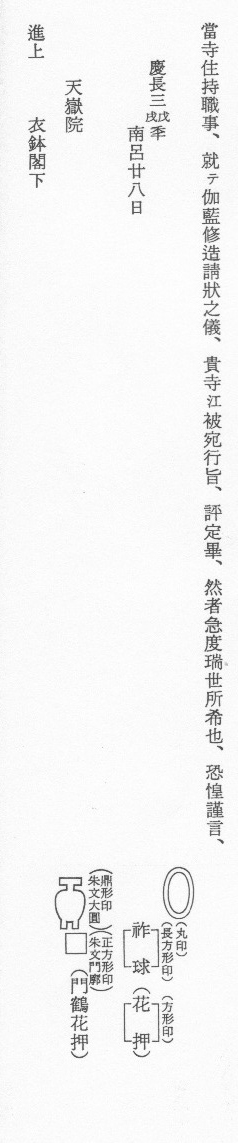 當寺住持職事、就テ伽藍修造請狀之儀、貴寺江被宛行旨、評定畢、然者急度瑞世所希也、恐惶謹言、
慶長三戊戌季
南呂廿八日
(丸印)
(長方形印)(方形印)
祚球(花押)
(鼎形印)(正方形印)
(朱文大圓)(朱文門廓)
(門鶴花押)
天嶽院
進上 衣鉢閣下